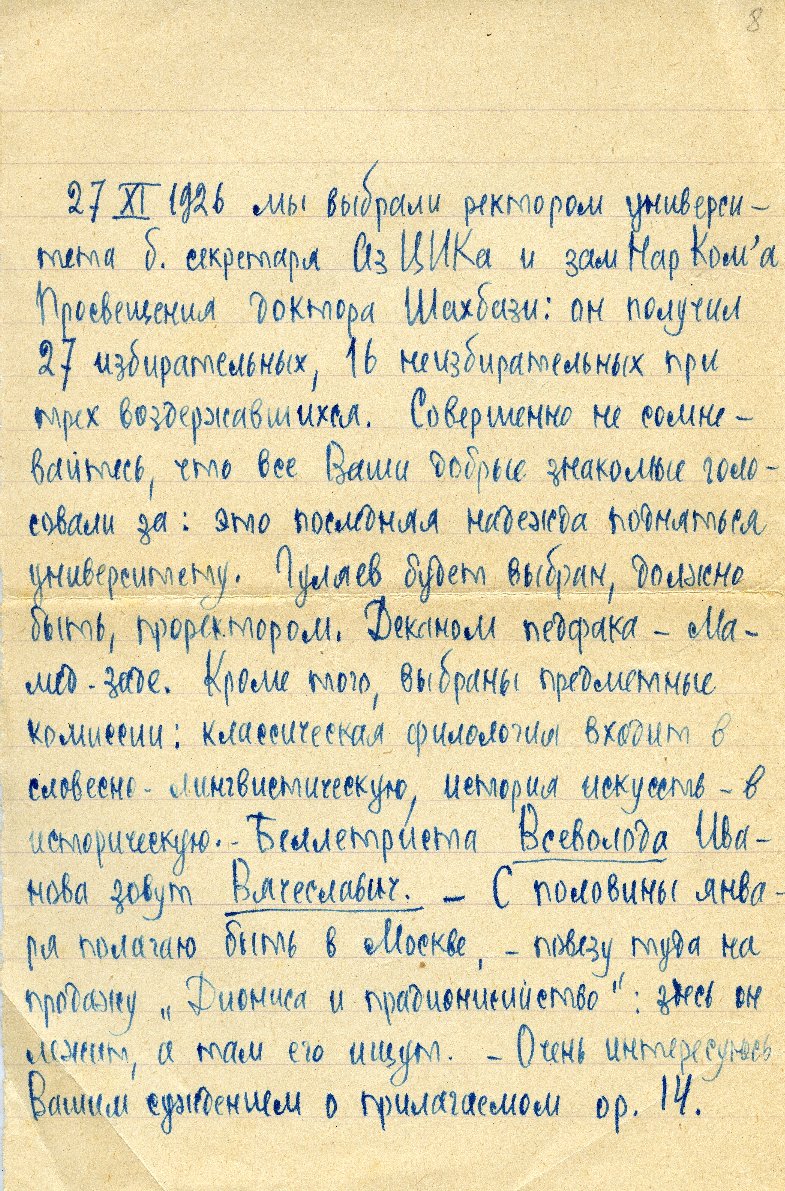 8
27 XI 1926 мы выбрали ректором универси-
тета б. секретаря АзЦИКа и замНарКом'а
Просвещения доктора Шахбази: он получил
27 избирательных, 16 неизбирательных при
трех воздержавшихся. Совершенно не сомне-
вайтесь, что все Ваши добрые знакомые голо-
совали за: это последняя надежда подняться
университету. Гуляев будет выбран, должно
быть, проректором. Деканом педфака - Ма-
мед-заде. Кроме того, выбраны предметные
комиссии: классическая филология входит в
словесно-лингвистическую, история искусств - в
историческую. - Беллетриста Всеволода Ива-
нова зовут Вячеславич. - С половины янва-
ря полагаю быть в Москве, - повезу туда на
продажу „Диониса и прадионисийство": здесь он
лежит, а там его ищут. - Очень интересуюсь
Вашим суждением о прилагаемом op. 14.